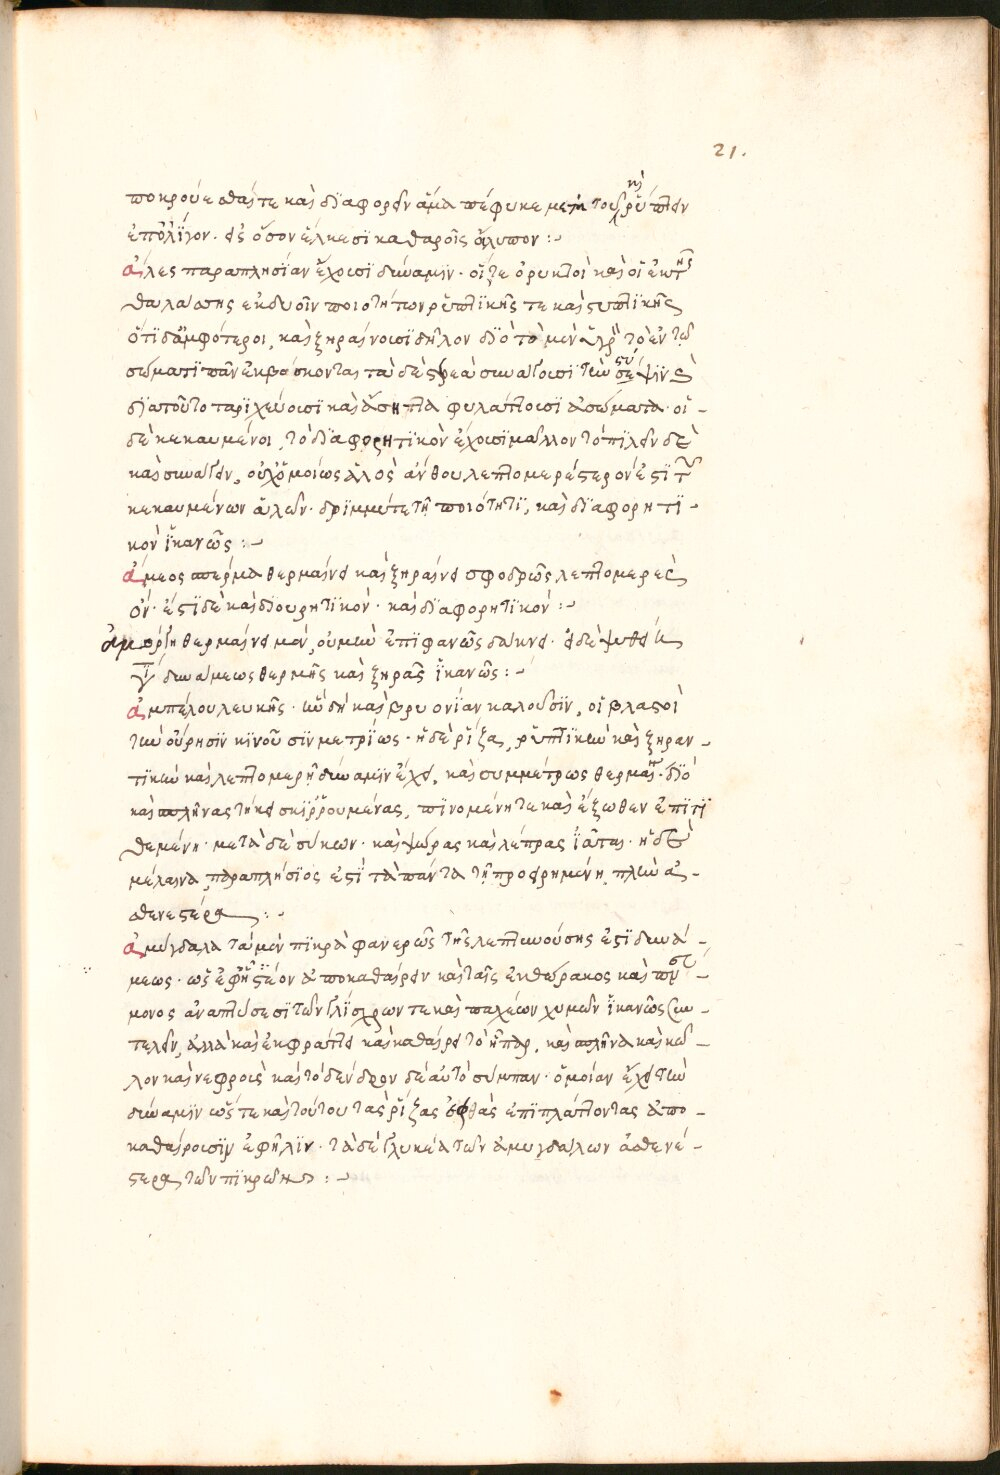 21.
ποκρούεσθαί τε καὶ διαφορεῖν ἅμα πέφυκε μετὰ τοῦ καὶ ῥύπτειν
ἐπ' ὀλίγον· εἰς ὅσον ἕλκεσι καθαροῖς ἄλυπον :~
ἅλες παραπλησίαν ἔχουσι δύναμιν· οἵ τε ὀρυκτοὶ καὶ οἱ ἐκ τῆς
θαλάσσης ἐκ δυοῖν ποιοτήτων ῥυπτικῆς τε καὶ στυπτικῆς
ὅτι δ' ἀμφότεροι, καὶ ξηραίνουσι δῆλον διὸ τὸ μὲν ὑγρὸν τὸ ἐν τῷ
σώματι πᾶν ἐκβόσκονται τὰ δὲ στερεὰ συνάγουσι τῇ στύψει
διὰ τοῦτο ταριχεύουσι καὶ ἄσηπτα φυλάττουσι σώματα· οἱ
δὲ κεκαυμένοι, τὸ διαφορητικὸν ἔχουσι μᾶλλον τὸ πιλεῖν δὲ
καὶ συνάγειν, οὐχ ὁμοίως ἁλὸς ἄνθου λεπτομερέστερον ἐστι τῶν
κεκαυμένων ἁλῶν· δριμμύ τε τῇ ποιότητι, καὶ διαφορητι
κὸν ἱκανῶς :~
ἄμεος σπέρμα θερμαίνει καὶ ξηραίνει σφοδρῶς λεπτομερὲς
ὄν· ἐστὶ δὲ καὶ διουρητικὸν· καὶ διαφορητικὸν :~
ἀμόργη θερμαίνει μὲν, οὐ μὴν ἐπιφανῶς δάκνει· ἡ δὲ ἑψηθεῖσα
δυνάμεως θερμῆς καὶ ξηρᾶς ἱκανῶς :~
ἀμπέλου λευκῆς· ἣν δὴ καὶ βρυονίαν καλοῦσιν, οἱ βλαστοὶ
τὴν οὔρησιν κινοῦσιν μετρίως· ἡ δὲ ῥίζα, ῥυπτικὴν καὶ ξηραν
τικὴν καὶ λεπτομερῆ δύναμιν ἔχει, καὶ συμμέτρως θερμὴν· διὸ
καὶ σπλῆνας τήκει σκιρρουμένας, πινομένη τε καὶ ἔξωθεν ἐπιτι
θεμένη· μετὰ δὲ σύκων· καὶ ψώρας καὶ λέπρας ἰᾶται· ἡ δὲ
μέλαινα, παραπλήσιος ἐστὶ τὰ πάντα τῇ προειρημένῃ, πλὴν ἀ
σθενεστέρα :~
ἀμύγδαλα τὰ μὲν πικρὰ φανερῶς τῆς λεπτυνούσης ἐστι δυνά
μεως· ὡς ἐφήλεις τέον ἀποκαθαίρειν καὶ ταῖς ἐκ θώρακος καὶ πνεύ
μονος ἀναπτύσεσι τῶν γλίσχρων τε καὶ παχέων χυμῶν ἱκανῶς συν
τελεῖν, ἀλλὰ καὶ ἐκφράττει καὶ καθαίρει τὸ ἧπαρ, καὶ σπλῆνα καὶ κῶ
λον καὶ νεφροὺς καὶ τὸ δένδρον δὲ αὐτὸ σύμπαν· ὁμοίαν ἔχει τὴν
δύναμιν ὥστε καὶ τούτου τὰς ῥίζας ἑφθὰς ἐπιπλάττοντας ἀπο
καθαίρουσιν ἐφήλιν· τὰ δὲ γλυκέα τῶν ἀμυγδάλων ἀσθενέ
στερα τῶν πικρῶν :~